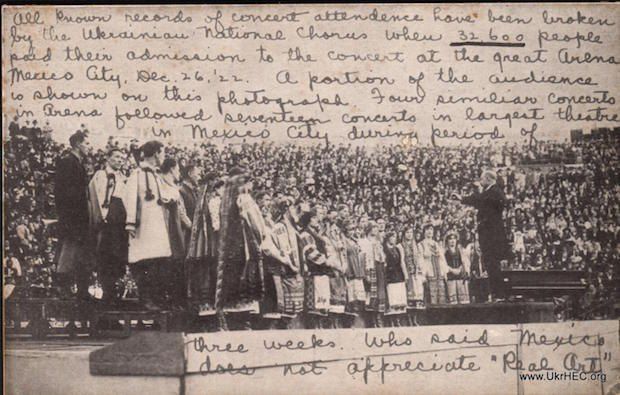 All known records of concert attendence have been broken
by the Ukrainian National Chorus when 32600 people
paid their admission to the concert at the great Arena
Mexico City, Dec. 26,'22. A portion of the audience
is shown on this photograph. Four similiar concerts
in Arena followed seventeen concerts in largest theatre
in Mexico City during period of
three weeks. Who said Mexico
does not appreciate "Real Art"
www.UkrHEC.org